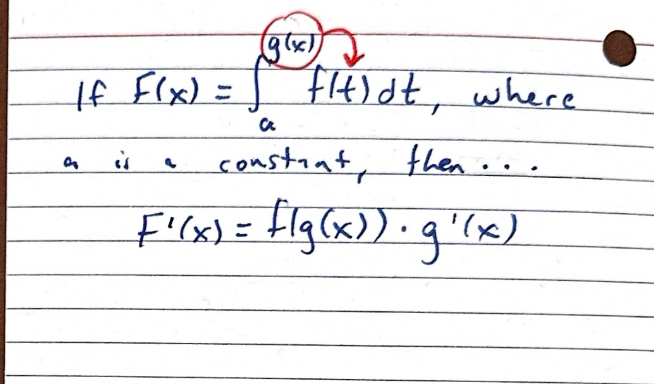 g(x)
If F(x) = ∫ₐ f(t) dt, where
a is a constant, then...
F'(x) = f(g(x)) · g'(x)